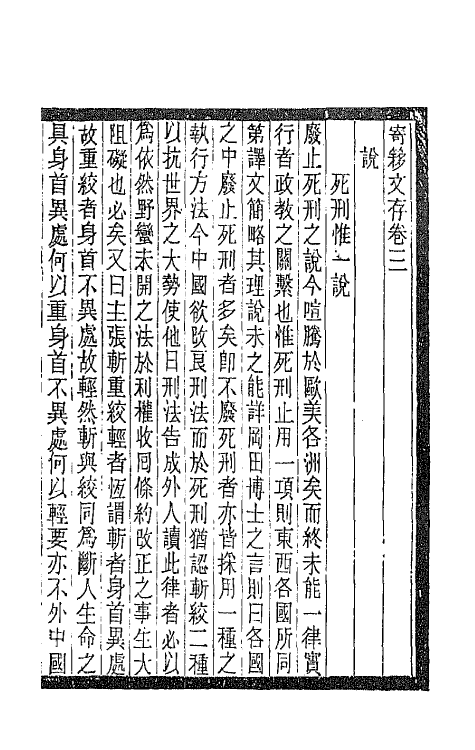 寄簃文存卷三
說
死刑惟一說
廢止死刑之說今喧騰於歐美各洲矣而終未能一律實
行者政教之關繫也惟死刑止用一項則東西各國所同
第譯文簡略其理說未之能詳岡田博士之言則曰各國
之中廢止死刑者多矣卽不廢死刑者亦皆採用一種之
執行方法今中國欲改良刑法而於死刑猶認斬絞二種
以抗世界之大勢使他日刑法告成外人讀此律者必以
爲依然野蠻未開之法於利權收回條約改正之事生大
阻礙也必矣又曰主張斬重絞輕者恆謂斬者身首異處
故重絞者身首不異處故輕然斬與絞同爲斷人生命之
具身首異處何以重身首不異處何以輕要亦不外中國